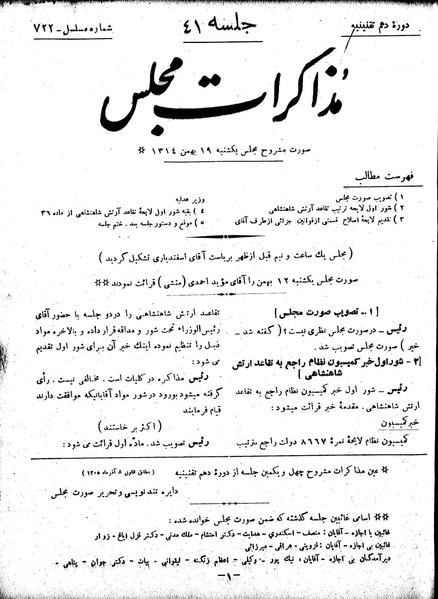 دورهٔ دهم تقنینیه
جلسه ۴۱
شماره مسلسل - ۷۲۲
مذاکرات مجلس
صورت مشروح مجلس یکشنبه ۱۹ بهمن ۱۳۱۴ *
فهرست مطالب
۱) تصویب صورت مجلس
۲) شور اول لایحه ترتیب تقاعد آرتش شاهنشاهی
۳) تقدیم لایحهٔ اصلاح قسمتی از قوانین جزائی از طرف آقای
وزیر عدلیه
۴) بقیه شور اول لایحهٔ تقاعد آرتش شاهنشاهی از ماده ۳۶
۵) موقع و دستور جلسه بعد - ختم جلسه
(مجلس یک ساعت و نیم قبل از ظهر بریاست آقای اسفندیاری تشکیل گردید)
صورت مجلس یکشنبه ۱۲ بهمن را آقای مؤید احمدی (منشی) قرائت نمودند **
[۱ - تصویب صورت مجلس]
رئیس - در صورت مجلس نظری نیست؟ (گفته شد -
خیر) صورت مجلس تصویب شد.
[۲- شور اول خبر کمیسیون نظام راجع به تقاعد ارتش
شاهنشاهی]
رئیس - شور اول خبر کمیسیون نظام راجع به تقاعد
ارتش شاهنشاهی. مقدمهٔ خبر قرائت میشود:
خبر کمیسیون
کمیسیون نظام لایحهٔ نمرهٔ ۸۶۶۷ دولت راجع بترتیب
تقاعد ارتش شاهنشاهی را در دو جلسه با حضور آقای
رئیس‌الوزراء تحت شور و مداقه قرار داده و بالاخره مواد
ذیل را تنظیم نموده اینک خبر آن برای شور اول تقدیم
می شود:
رئیس مذاکره در کلیات است. مخالفی نیست. رأی
گرفته میشود بورود در شور مواد آقایانیکه موافقت دارند
قیام فرمایند
(اکثر برخاستند)
رئیس تصویب شد. مادهٔ اول قرائت می شود:
* عین مذاکرات مشروح چهل و یکمین جلسه از دورهٔ دهم تقنینیه (مطابق قانون ۸ آذرماه ۱۳۰۵)
دایره تندنویسی و تحریر صورت مجلس
** اسامی غائبین جلسه گذشته که ضمن صورت مجلس خوانده شده:
غائبین با اجازه - آقایان: منصف - اسکندری - هدایت - دکتر احتشام - ملک مدنی - دکتر قزل ایاغ - زوار
غائبین بی اجازه - آقایان: قزوینی - عراقی - میرزائی
دیرآمدگان بی اجازه - آقایان: نیک پور - وکیلی - اعظم زنگنه - لیقوانی - بیات - دکتر جوان - پناهی -
-۱-